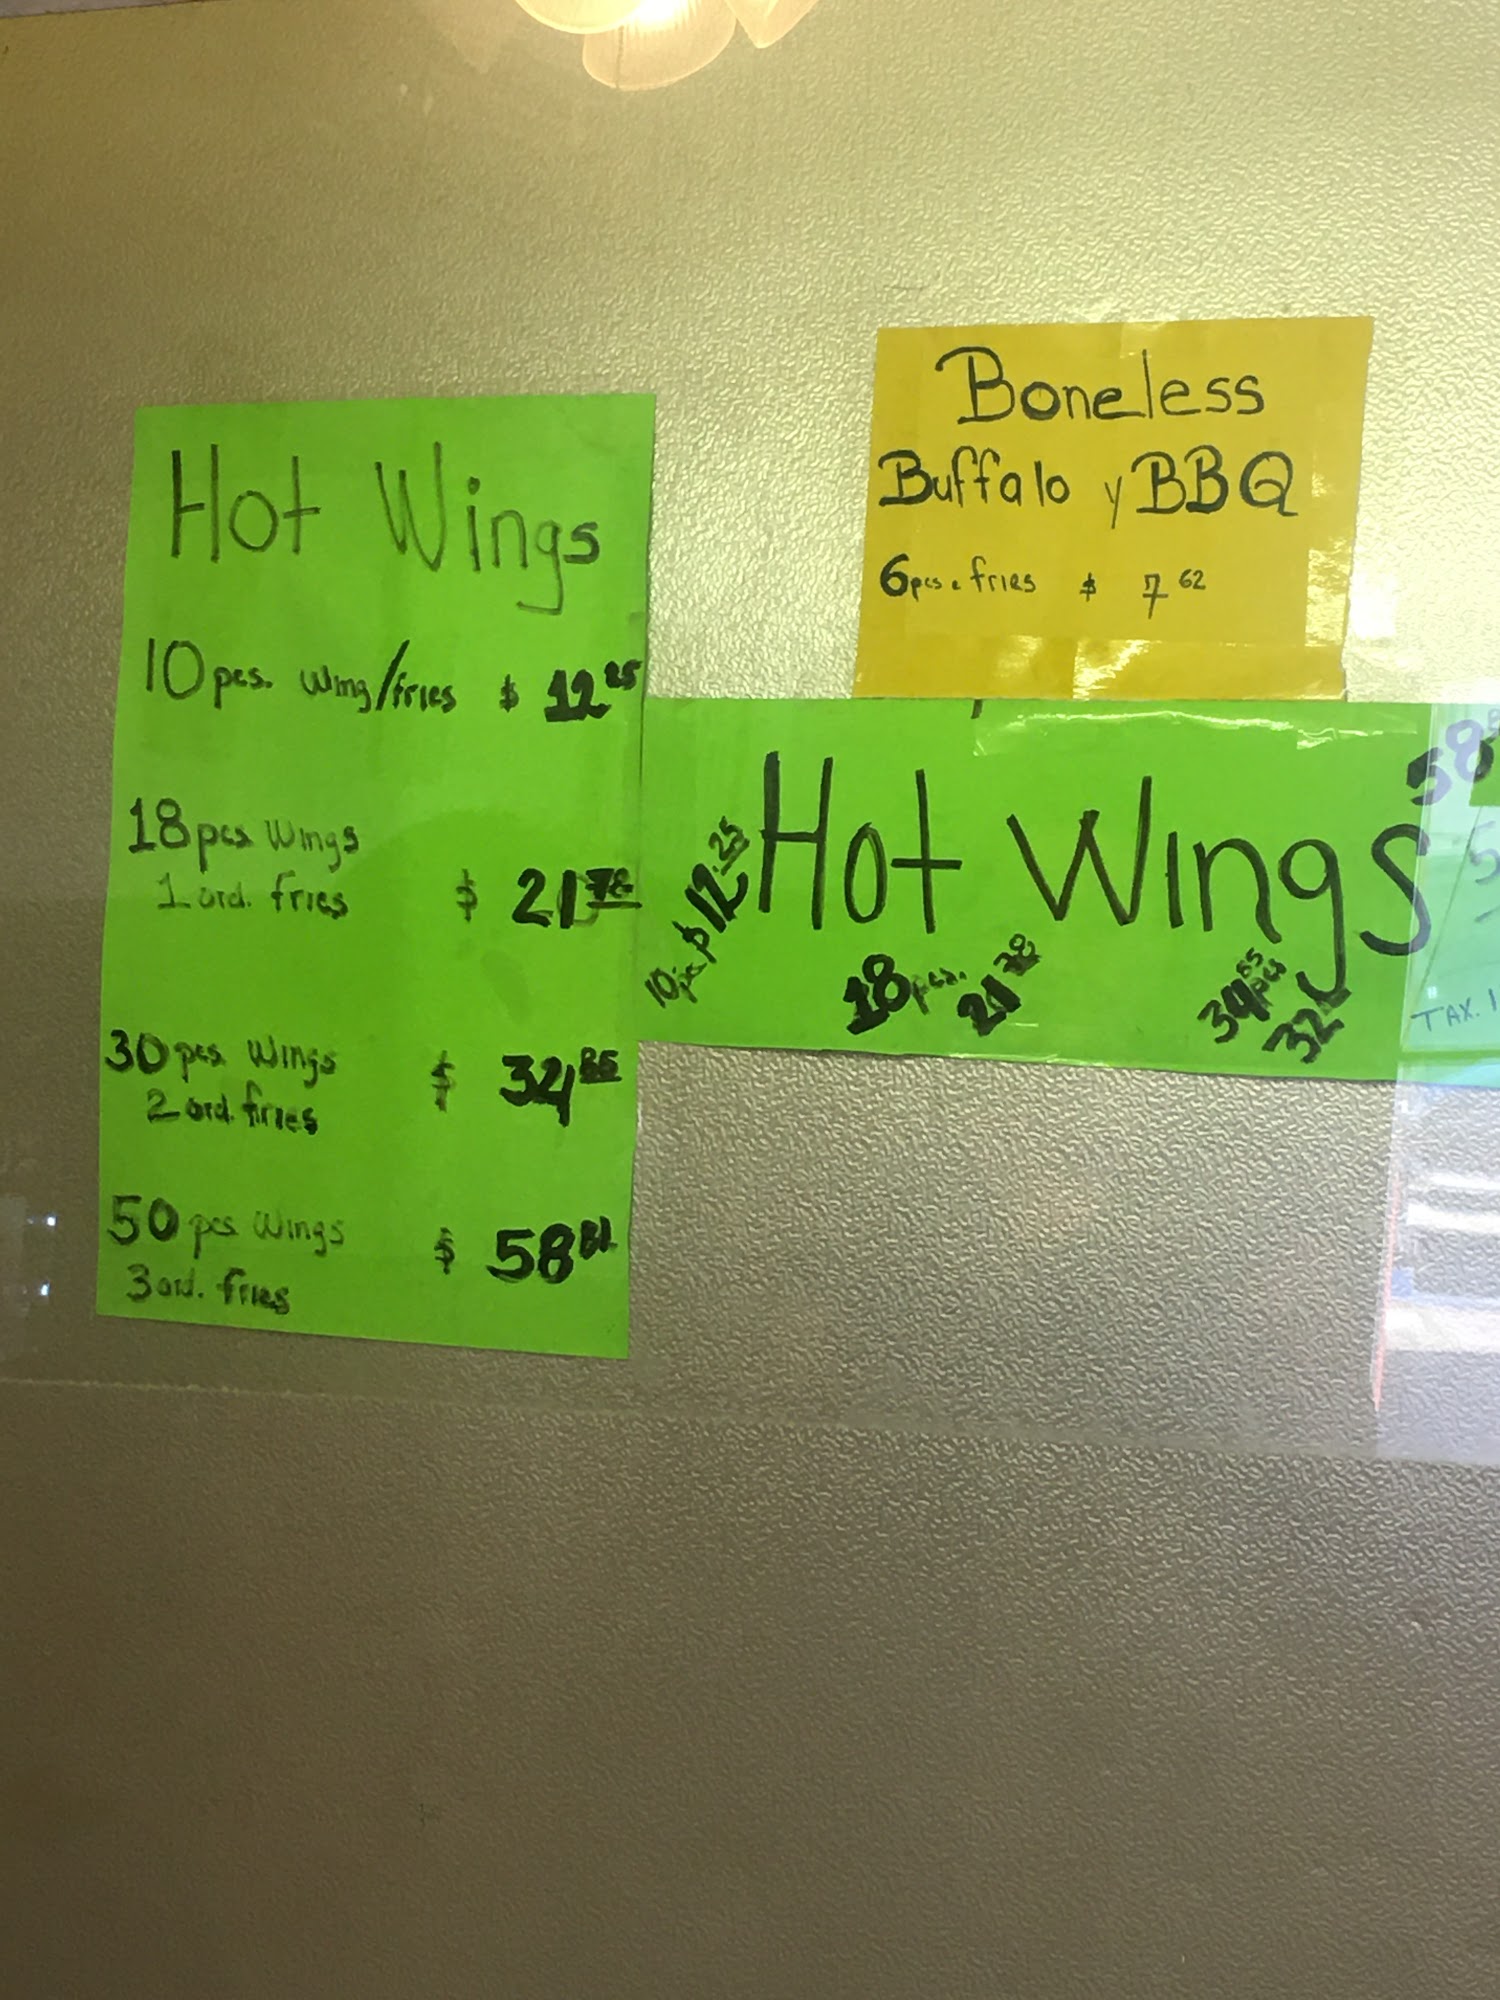 Hot Wings
10 pcs. Wing/fries $ 12 25
18 pcs Wings
1 ord. fries $ 21 78
30 pcs Wings $ 34 85
2 ord. fries
50 pcs Wings $ 58 81
3 ord. fries
Boneless
Buffalo y BBQ
6 pcs e fries $ 7 62
Hot Wings
10 pc $12.25
18 pcs. 21 78
34 85
pcs
32
58
TAX.